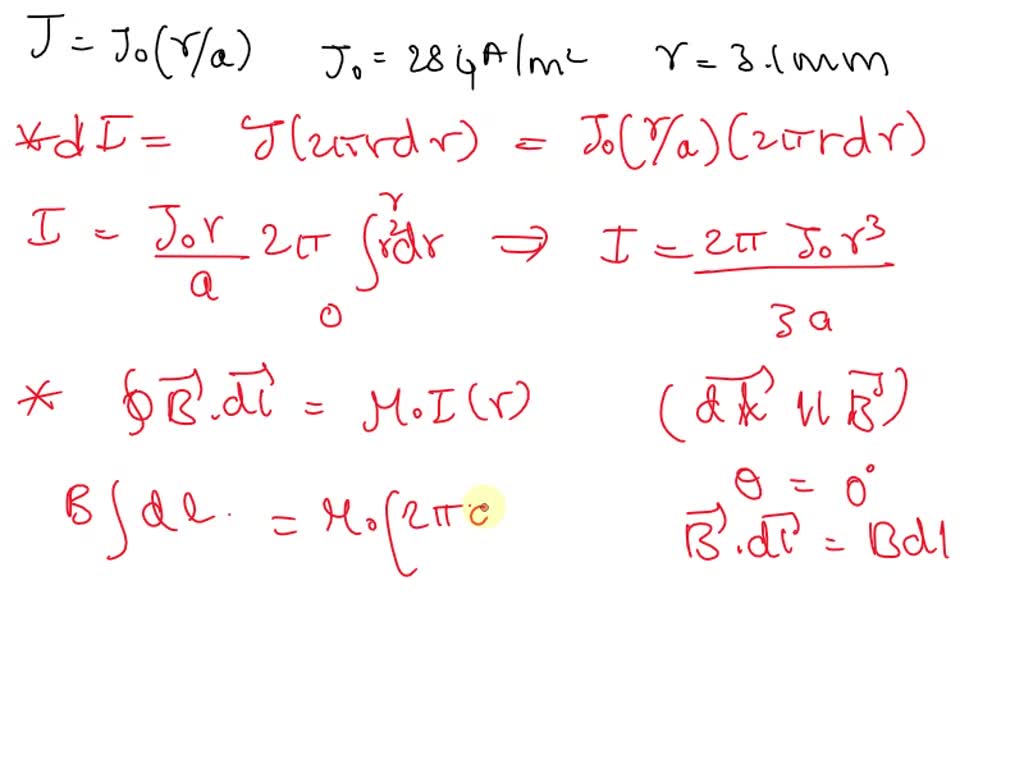 J = J₀(r/a) J₀ = 284A/m² r = 3.1mm
*dI = J(2πrdr) = J₀(r/a)(2πrdr)
I = J₀r/a 2π ∫₀ʳ r²dr ⇒ I = 2π J₀r³/3a
* ∮B⃗.dl⃗ = μ₀I(r) (dl⃗ || B⃗)
B∫dl. = μ₀(2π θ = 0°
B⃗.dl⃗ = Bdl